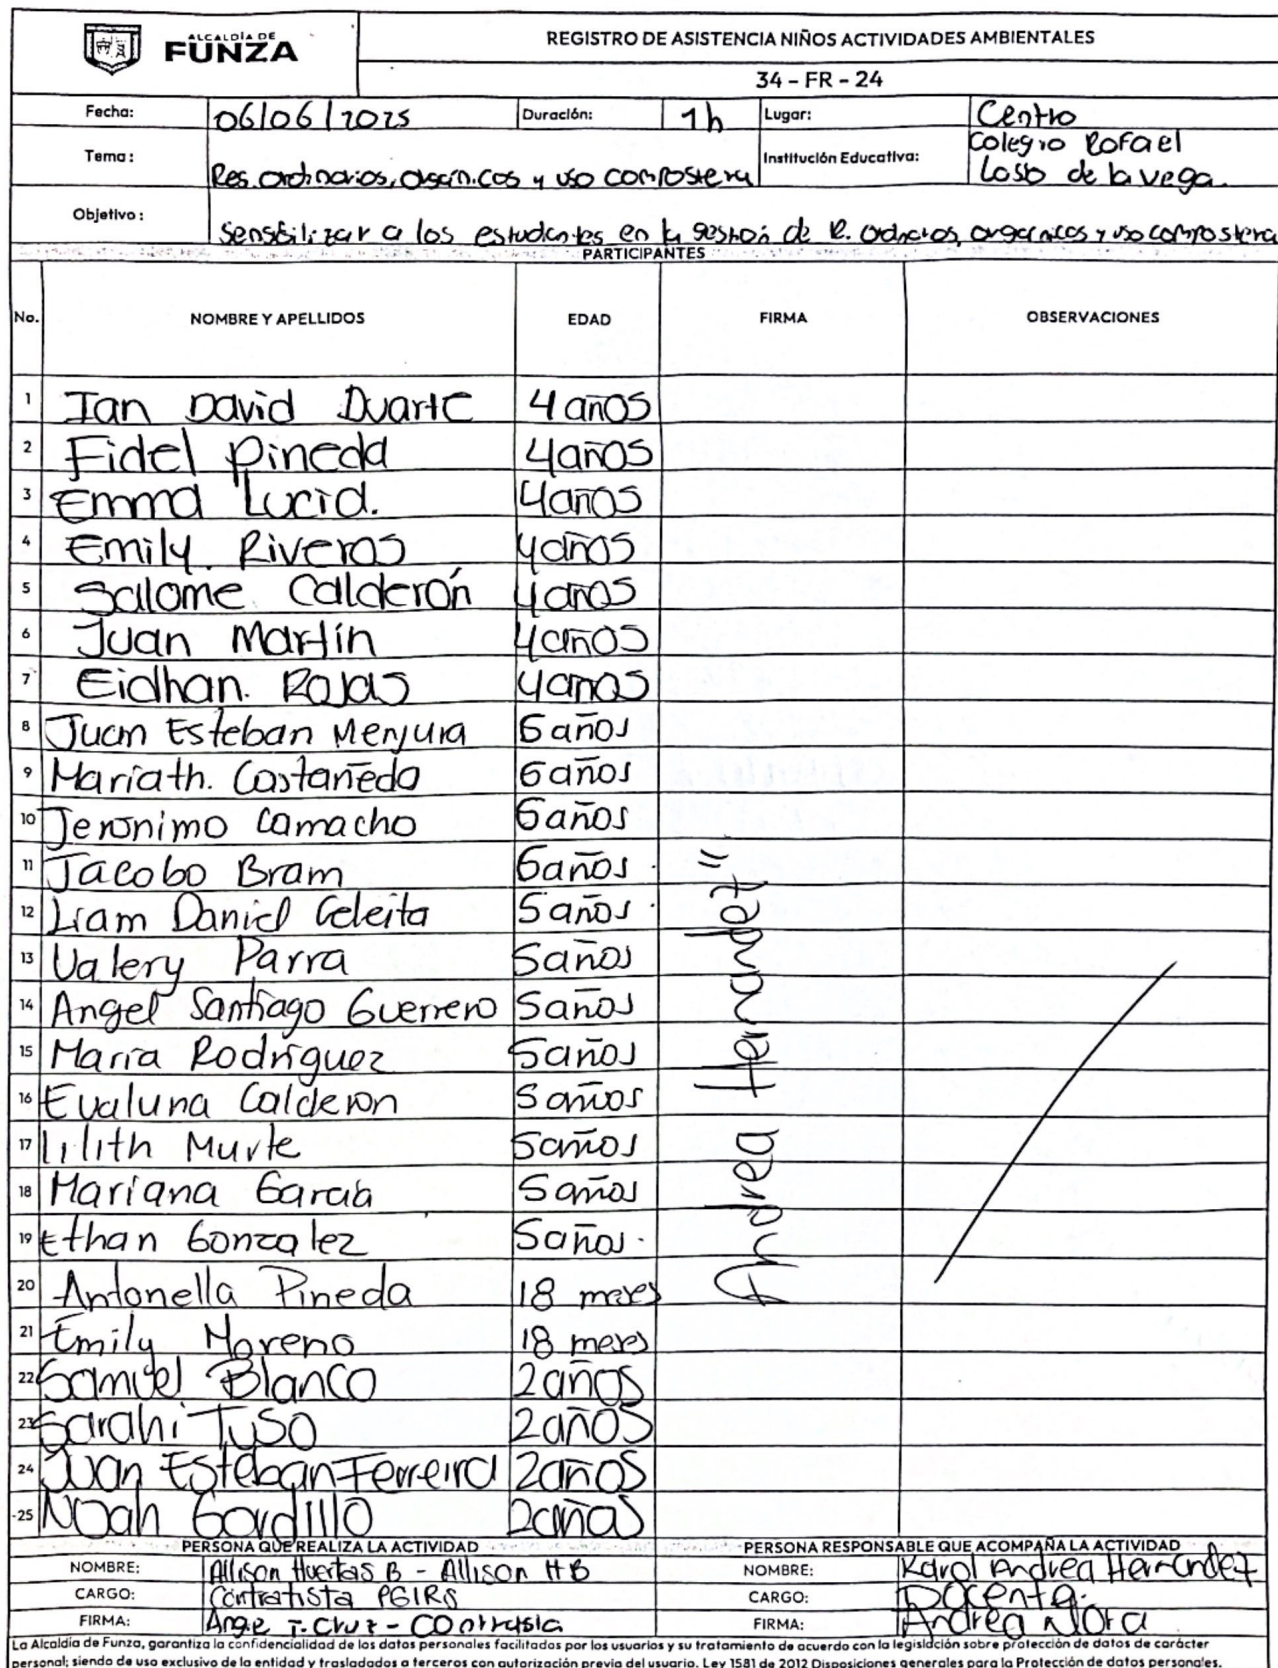 ALCALDÍA DE
FUNZA
REGISTRO DE ASISTENCIA NIÑOS ACTIVIDADES AMBIENTALES
34 - FR - 24
Fecha: 06/06/2025 Duración: 1h Lugar: Centro
Tema: Res. ordinarios, orgánicos y uso compostera Institución Educativa: Colegio Rafael
Loso de la vega.
Objetivo: Sensibilizar a los estudiantes en la gestión de R. ordinarios, organicos y uso compostera
PARTICIPANTES
No. NOMBRE Y APELLIDOS EDAD FIRMA OBSERVACIONES
1 Ian David Duarte 4 años
2 Fidel Pineda 4 años
3 Emma Lucia. 4 años
4 Emily Riveros 4 años
5 Salome Calderón 4 años
6 Juan Martín 4 años
7 Eidhan. Rojas 4 años
8 Juan Esteban Menjura 6 años
9 Mariath. Castañeda 6 años
10 Jeronimo Camacho 6 años
11 Jacobo Bram 6 años
12 Liam Daniel Celeita 5 años
13 Valery Parra 5 años
14 Angel Santiago Guerrero 5 años
15 María Rodríguez 5 años
16 Evaluna Calderon 5 años
17 Lilith Murte 5 años
18 Mariana García 5 años
19 Ethan Gonzalez 5 años.
20 Antonella Pineda 18 meses
21 Emily Moreno 18 meses
22 Samuel Blanco 2 años
23 Sarahi Tuso 2 años
24 Juan Esteban Ferreira 2 años
25 Noah Gordillo 2 años
Andrea Hernandez"
PERSONA QUE REALIZA LA ACTIVIDAD PERSONA RESPONSABLE QUE ACOMPAÑA LA ACTIVIDAD
NOMBRE: Allison Huertas B - Allison HB NOMBRE: Karol Andrea Hernandez
CARGO: Contratista PGIRS CARGO: Docente.
FIRMA: Cruz - FIRMA: Andrea
La Alcaldía de Funza, garantiza la confidencialidad de los datos personales facilitados por los usuarios y su tratamiento de acuerdo con la legislación sobre protección de datos de carácter
personal; siendo de uso exclusivo de la entidad y trasladados a terceros con autorización previa del usuario. Ley 1581 de 2012 Disposiciones generales para la Protección de datos personales.